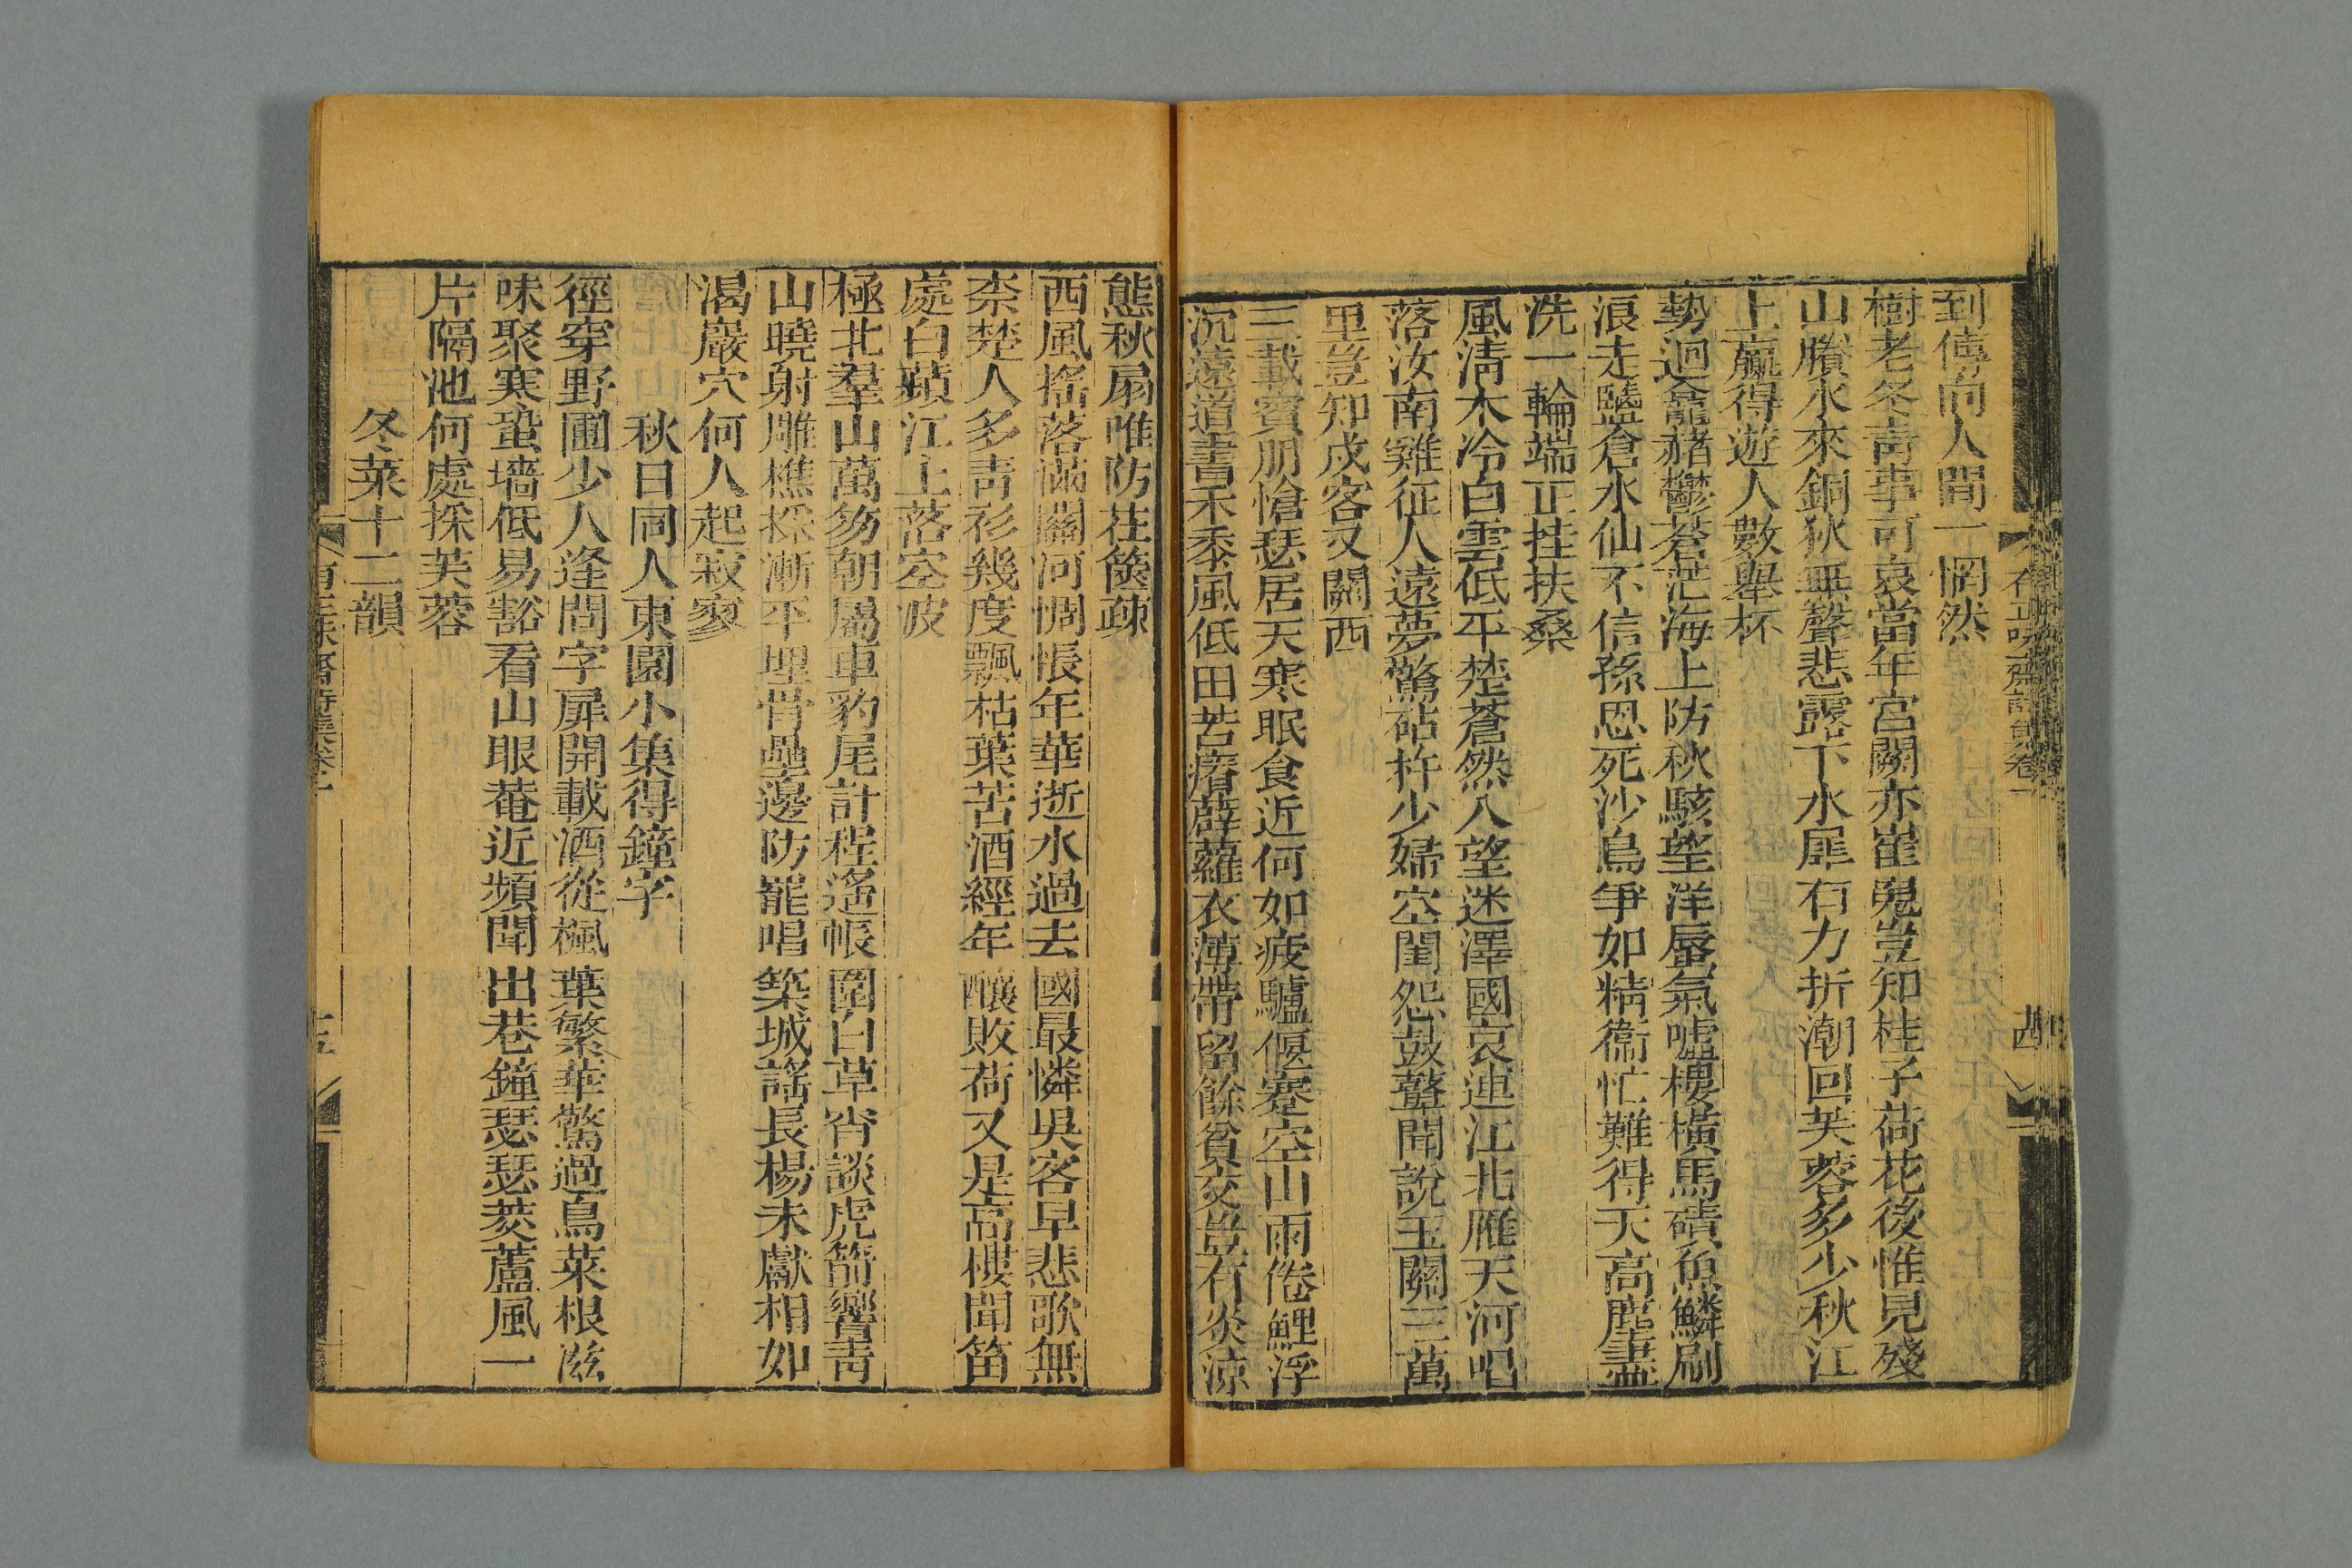 有正味齋詩集卷一
十四
到傳向人間一惘然
樹老冬青事可哀當年宮闕亦崔嵬豈知桂子荷花後惟見殘
山賸水來銅狄無聲悲露下水犀有力折潮回芙蓉多少秋江
上贏得遊人數舉杯
勢迴龕赭鬱蒼茫海上防秋駭望洋蜃氣噓樓橫馬磧魚鱗刷
浪走鹽倉水仙不信孫恩死沙鳥爭如精衞忙難得天高塵盡
洗一輪端正挂扶桑
風淸木冷白雲低平楚蒼然入望迷澤國哀連江北雁天河唱
落汝南雞征人遠夢驚砧杵少婦空閨怨鼓鼙聞說玉關三萬
里豈知戍客又關西
三載賓朋愴瑟居天寒眠食近何如疲驢偃蹇空山雨倦鯉浮
沉遠道書禾黍風低田苦瘠薜蘿衣薄帶留餘貧交豈有炎涼
態秋扇唯防在篋疎
西風搖落滿關河惆悵年華逝水過去國最憐吳客早悲歌無
柰楚人多靑衫幾度飄枯葉苦酒經年釀敗荷又是高樓聞笛
處白蘋江上落空波
極北羣山萬笏朝屬車豹尾計程遙帳圍白草宵談虎箭響靑
山曉射雕樵採漸平埋骨壘邊防罷唱築城謠長楊未獻相如
渴巖穴何人起寂寥
秋日同人東園小集得鐘字
徑穿野圃少人逢問字扉開載酒從楓葉繁華驚過鳥菜根滋
味聚寒蛩墻低易豁看山眼菴近頻聞出巷鐘瑟瑟菼蘆風一
片隔池何處採芙蓉
冬菜十二韻
有正味齋詩集卷一
十五